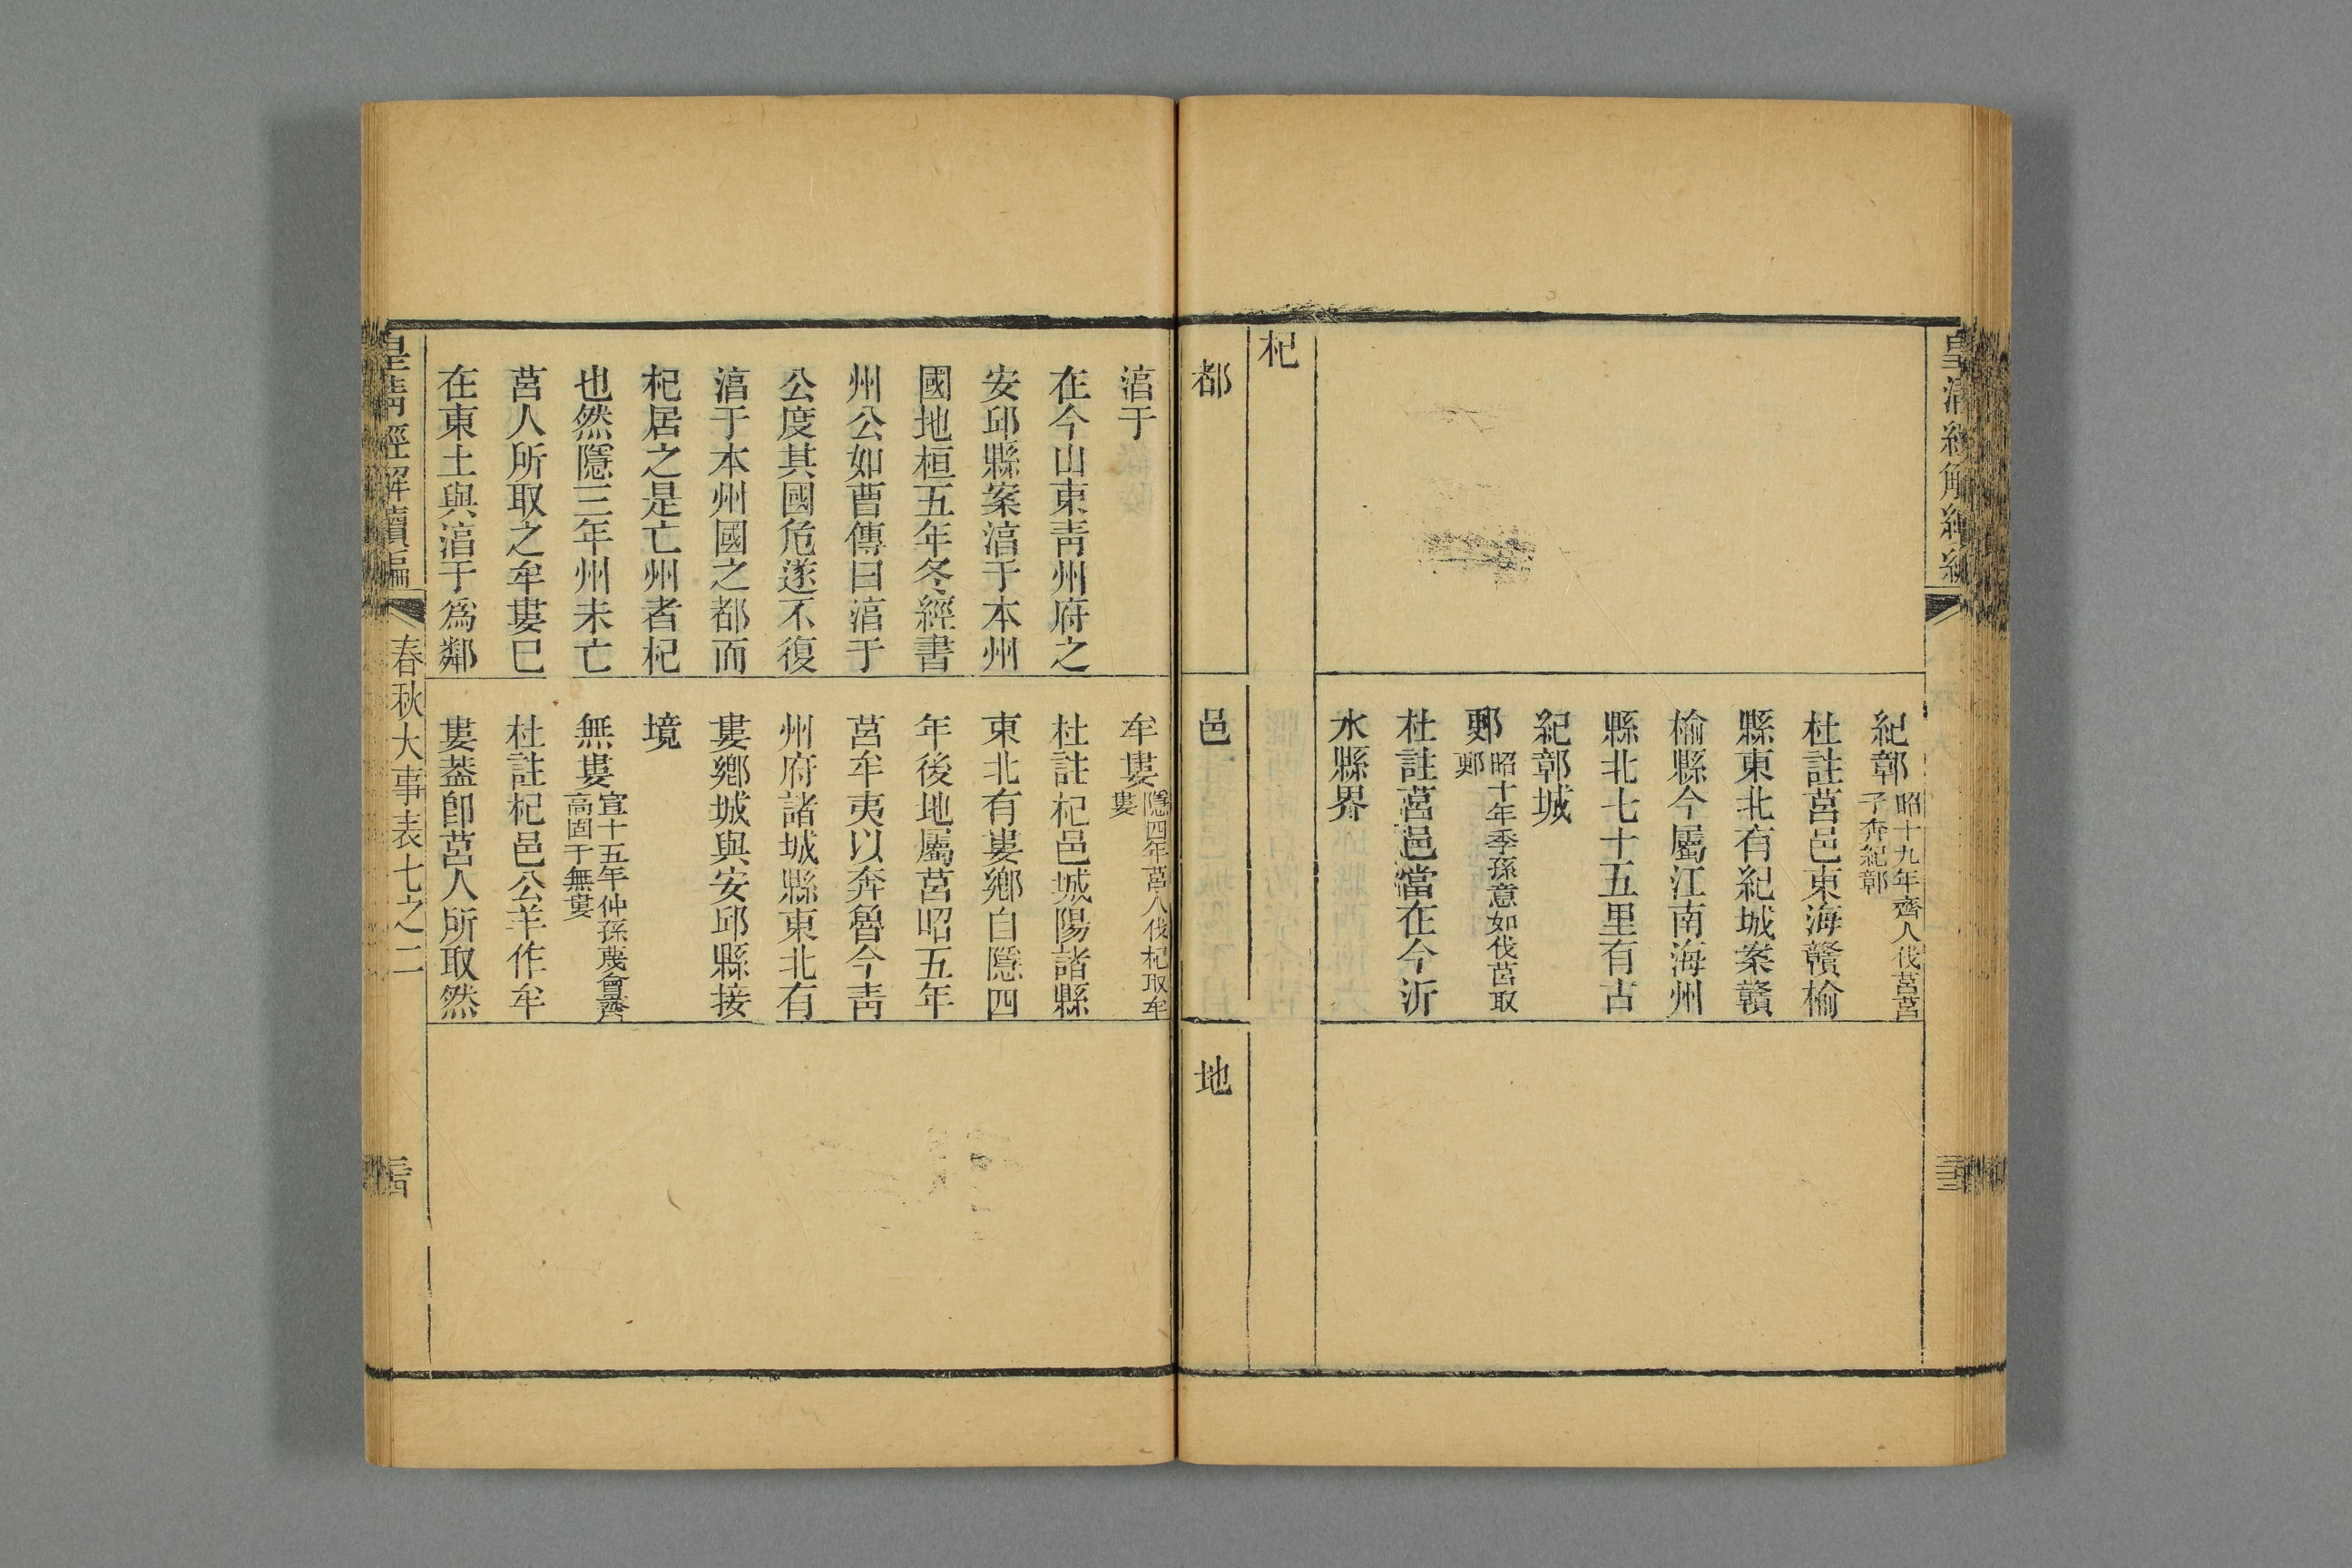 皇清經解續編
紀鄣昭十九年齊人伐莒莒
子奔紀鄣
杜註莒邑東海贛榆
縣東北有紀城案贛
榆縣今屬江南海州
縣北七十五里有古
紀鄣城
郠昭十年季孫意如伐莒取
郠
杜註莒邑當在今沂
水縣界
杞
都
邑
地
淳于
在今山東青州府之
安邱縣案淳于本州
國地桓五年冬經書
州公如曹傳曰淳于
公度其國危遂不復
淳于本州國之都而
杞居之是亡州者杞
也然隱三年州未亡
莒人所取之牟婁已
在東土與淳于為鄰
牟婁隱四年莒人伐杞取牟
婁
杜註杞邑城陽諸縣
東北有婁鄉自隱四
年後地屬莒昭五年
莒牟夷以奔魯今青
州府諸城縣東北有
婁鄉城與安邱縣接
境
無婁宣十五年仲孫蔑會齊
高固于無婁
杜註杞邑公羊作牟
婁蓋卽莒人所取然
皇清經解續編
春秋大事表七之二